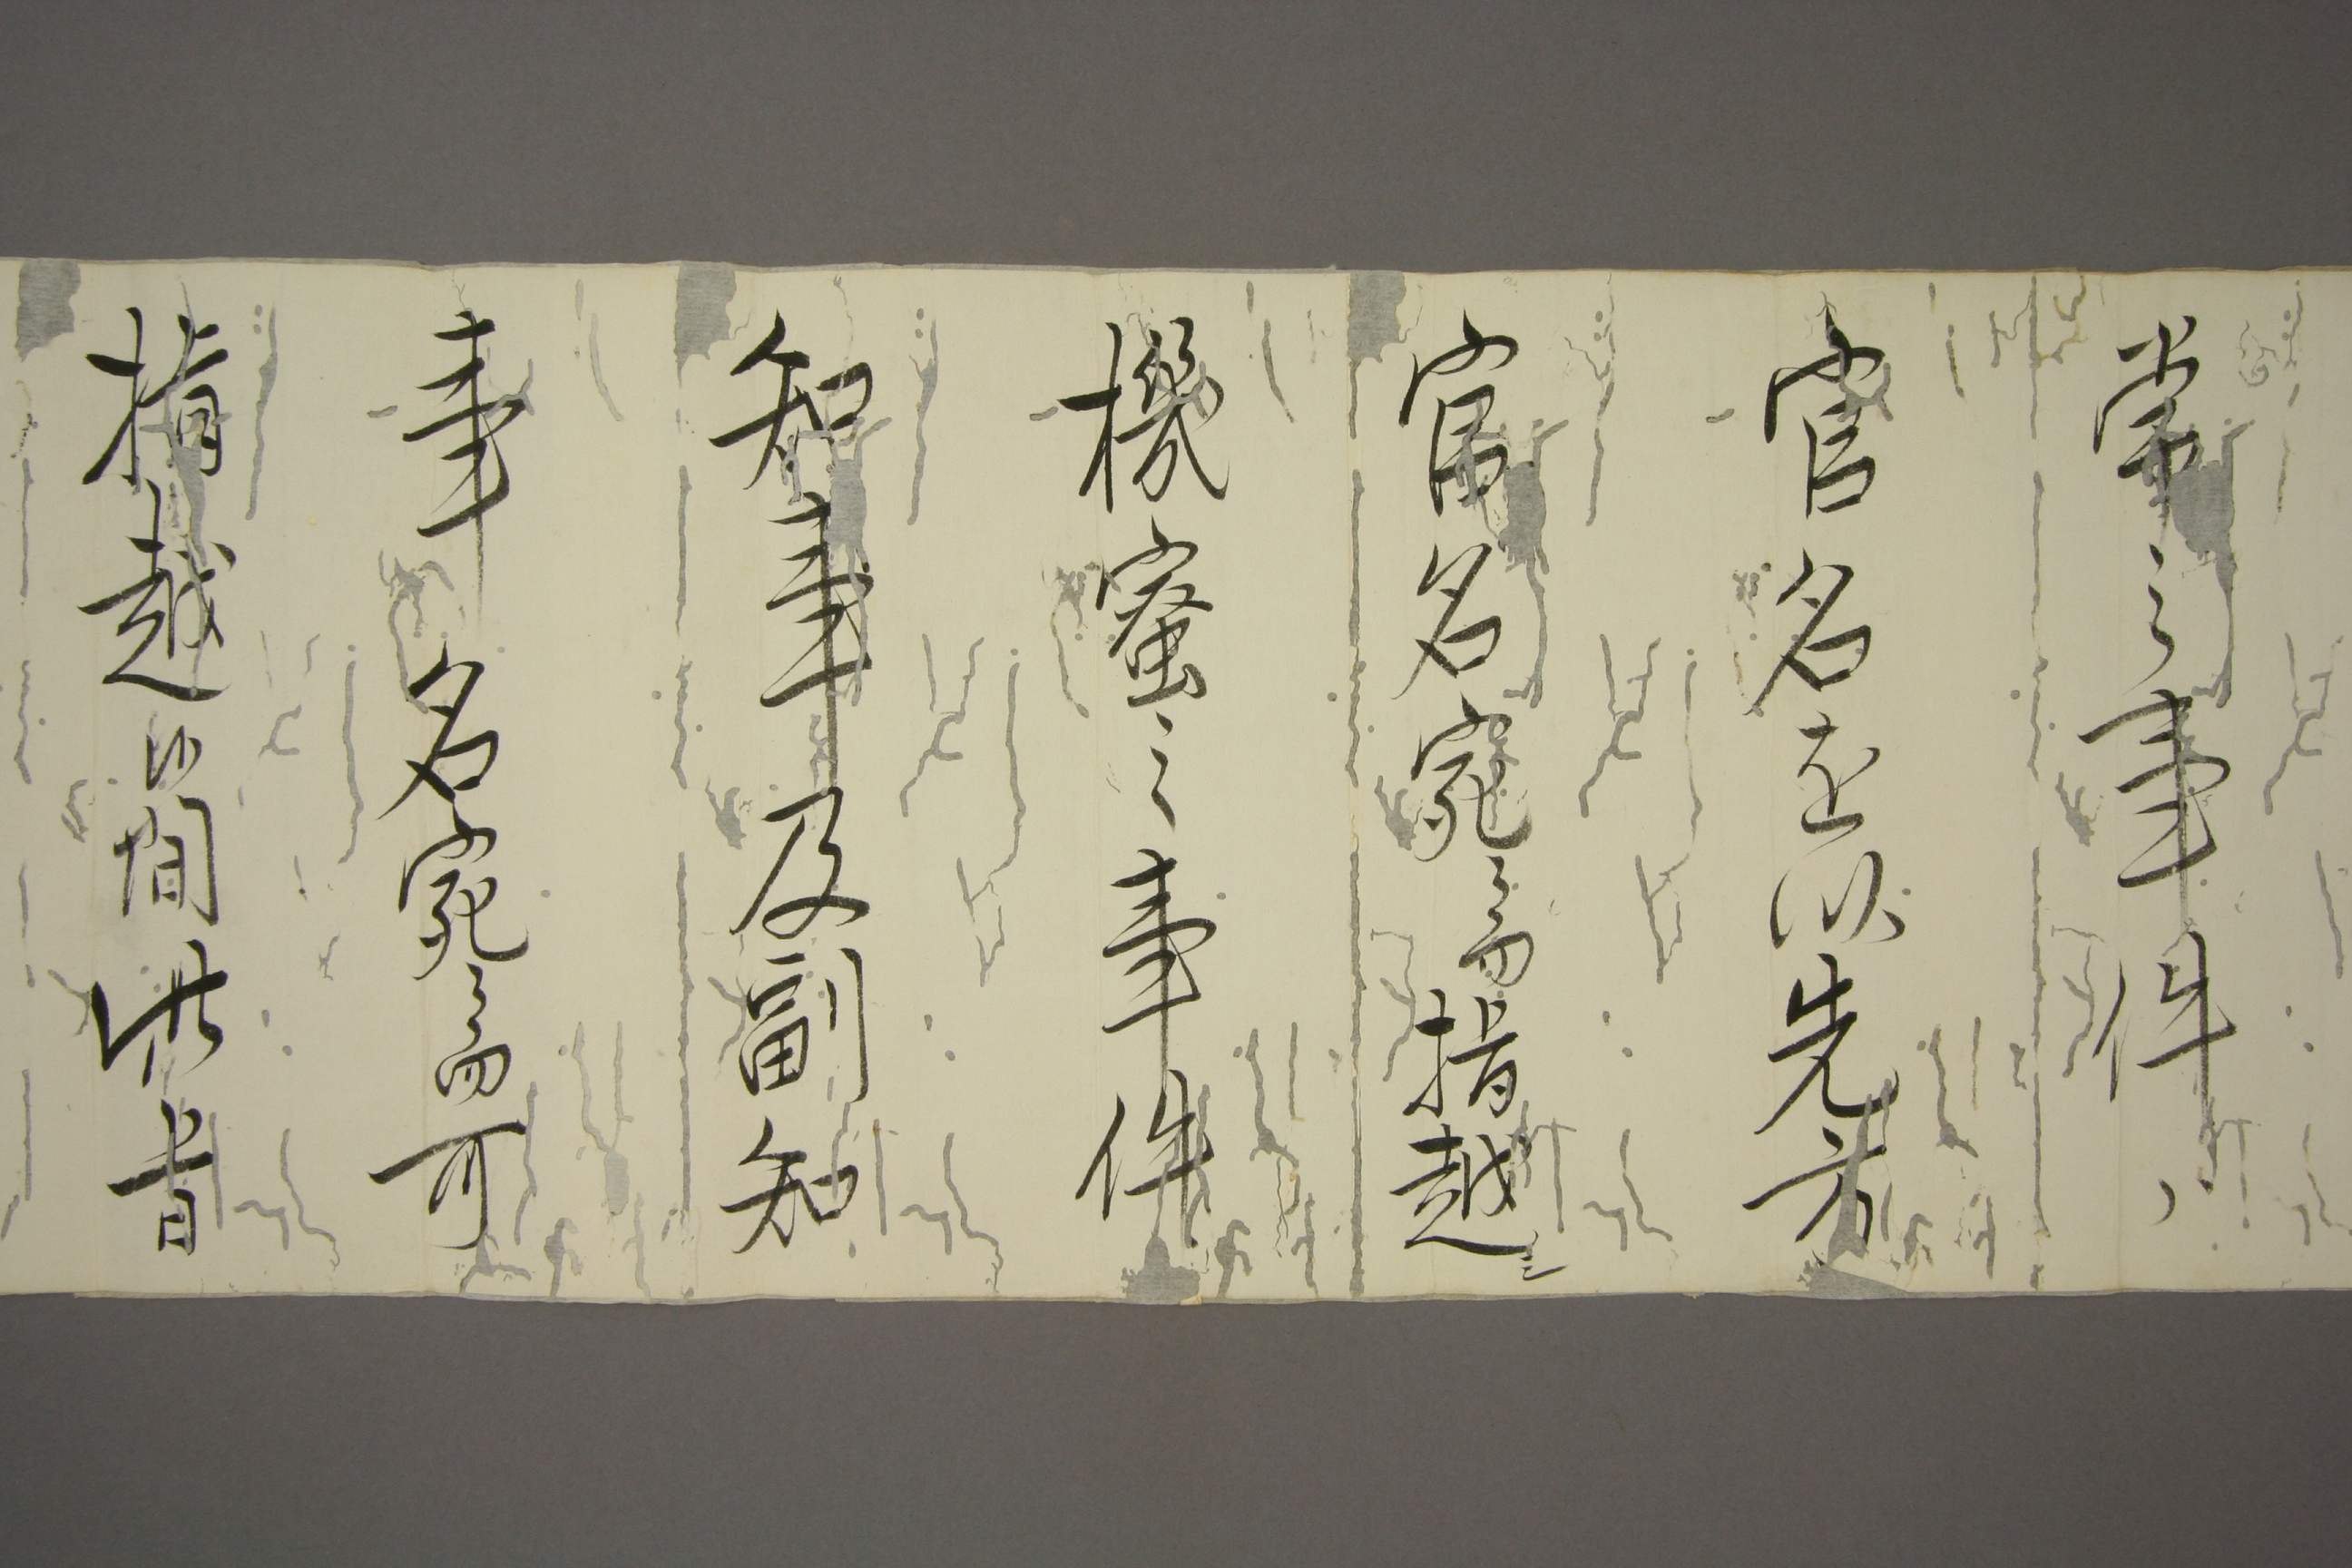 常之事件ハ
官名を以先方
官名宛ニ而指越
機蜜之事件
知事及副知
事名宛ニ而可
指越候間此旨